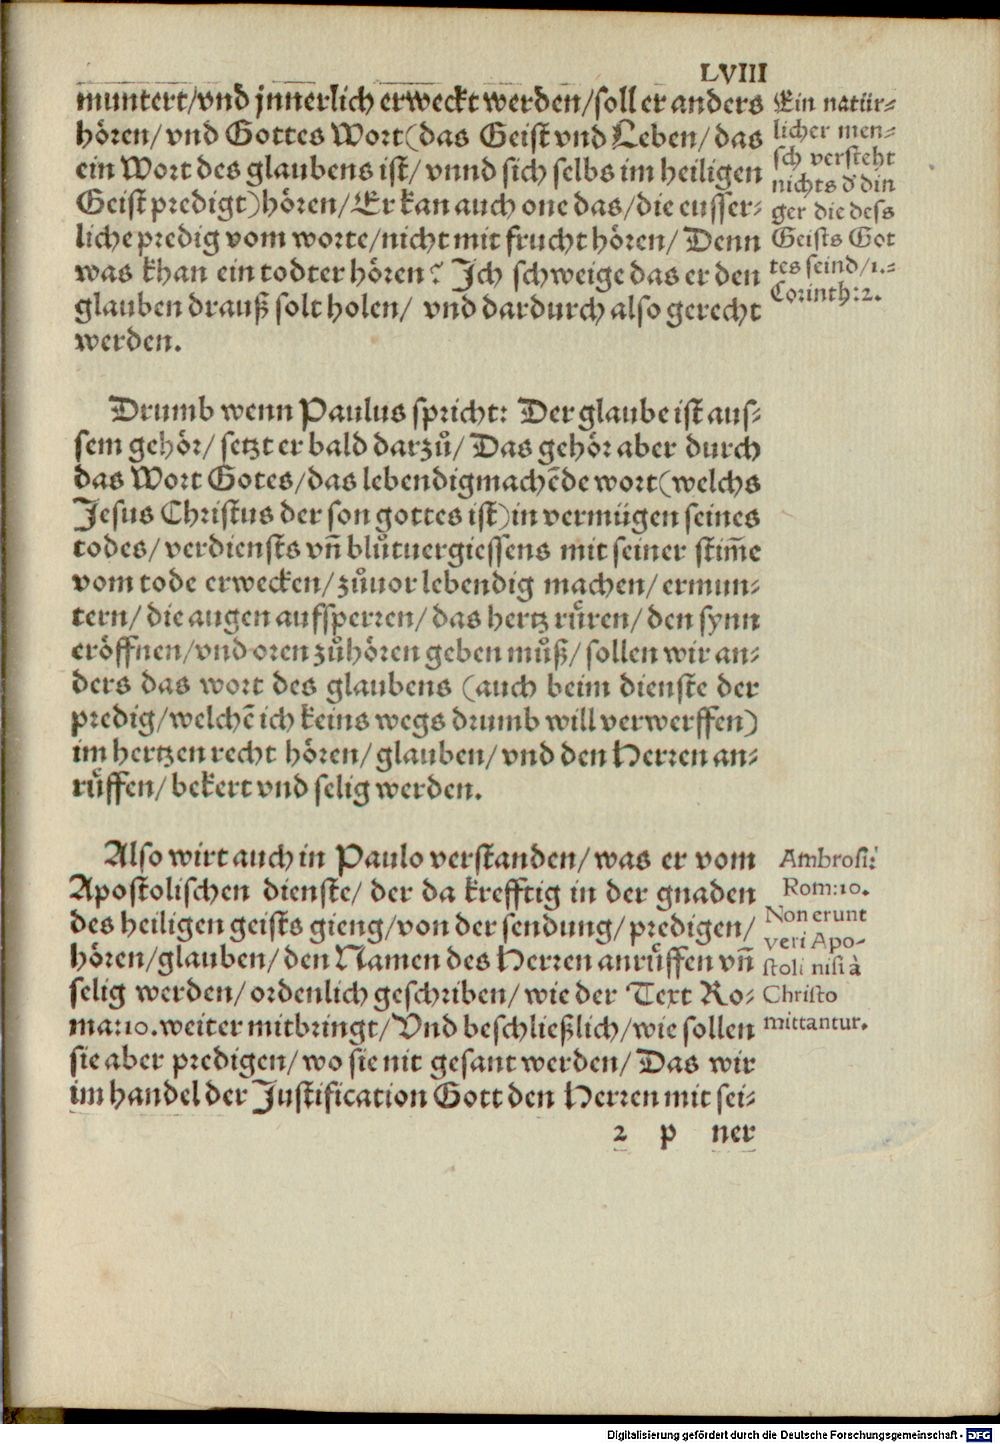 LVIII
muntert/vnd jnnerlich erweckt werden/soll er anders
hören/ vnd Gottes Wort(das Geist vnd Leben/ das
ein Wort des glaubens ist/ vnnd sich selbs im heiligen
Geist predigt)hören/ Er kan auch one das/die eusser-
liche predig vom worte/nicht mit frucht hören/ Denn
was khan ein todter hören? Ich schweige das er den
glauben drauß solt holen/ vnd dardurch also gerecht
werden.
Ein natür-
licher men-
sch versteht
nichts d din
ger die dess
Geists Got
tes seind/1.-
Corinth:2.
Drumb wenn Paulus spricht: Der glaube ist aus-
sem gehör/ setzt er bald darzů/ Das gehör aber durch
das Wort Gotes/das lebendigmachēde wort(welchs
Jesus Christus der son gottes ist)in vermügen seines
todes/ verdiensts vn̄ blůtuergiessens mit seiner stim̄e
vom tode erwecken/ zůuor lebendig machen/ ermun-
tern/ die augen aufsperren/ das hertz rüren/ den synn
eröffnen/vnd oren zůhören geben můß/ sollen wir an-
ders das wort des glaubens (auch beim dienste der
predig/welchē ich keins wegs drumb will verwerffen)
im hertzen recht hören/ glauben/ vnd den Herren an-
rüffen/ bekert vnd selig werden.
Also wirt auch in Paulo verstanden/ was er vom
Apostolischen dienste/ der da krefftig in der gnaden
des heiligen geists gieng/von der sendung/ predigen/
hören/glauben/ den Namen des Herren anrüffen vn̄
selig werden/ ordenlich geschriben/ wie der Text Ro-
ma:10.weiter mitbringt/ Vnd beschließlich/wie sollen
sie aber predigen/ wo sie nit gesant werden/ Das wir
im handel der Justification Gott den Herren mit sei-
Ambrosi:
Rom:10.
Non erunt
veri Apo-
stoli nisi à
Christo
mittantur.
2 p ner
Digitalisierung gefördert durch die Deutsche Forschungsgemeinschaft - DFG